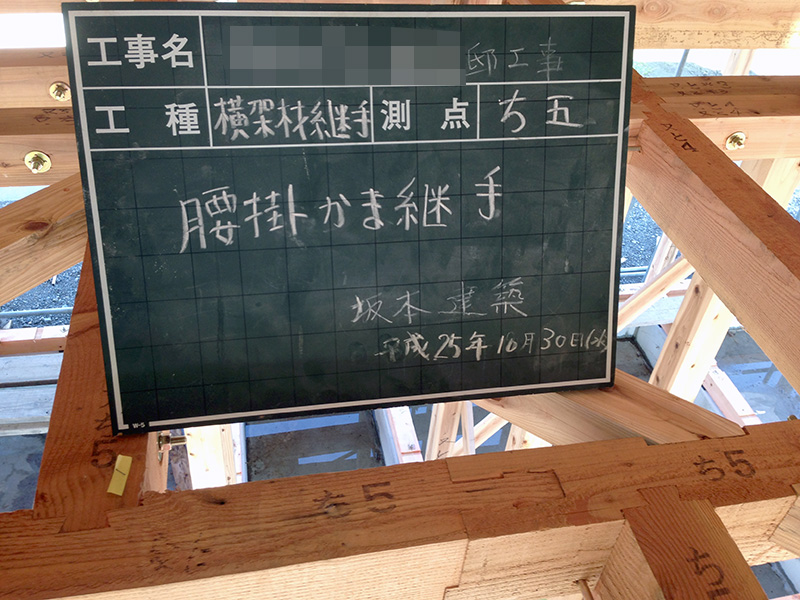 工事名 邸工事
工種 横架材継手 測点 ち五
腰掛かま継手
坂本建築
平成25年10月30日(水)
W-S
5
ち5
ち5
ち5